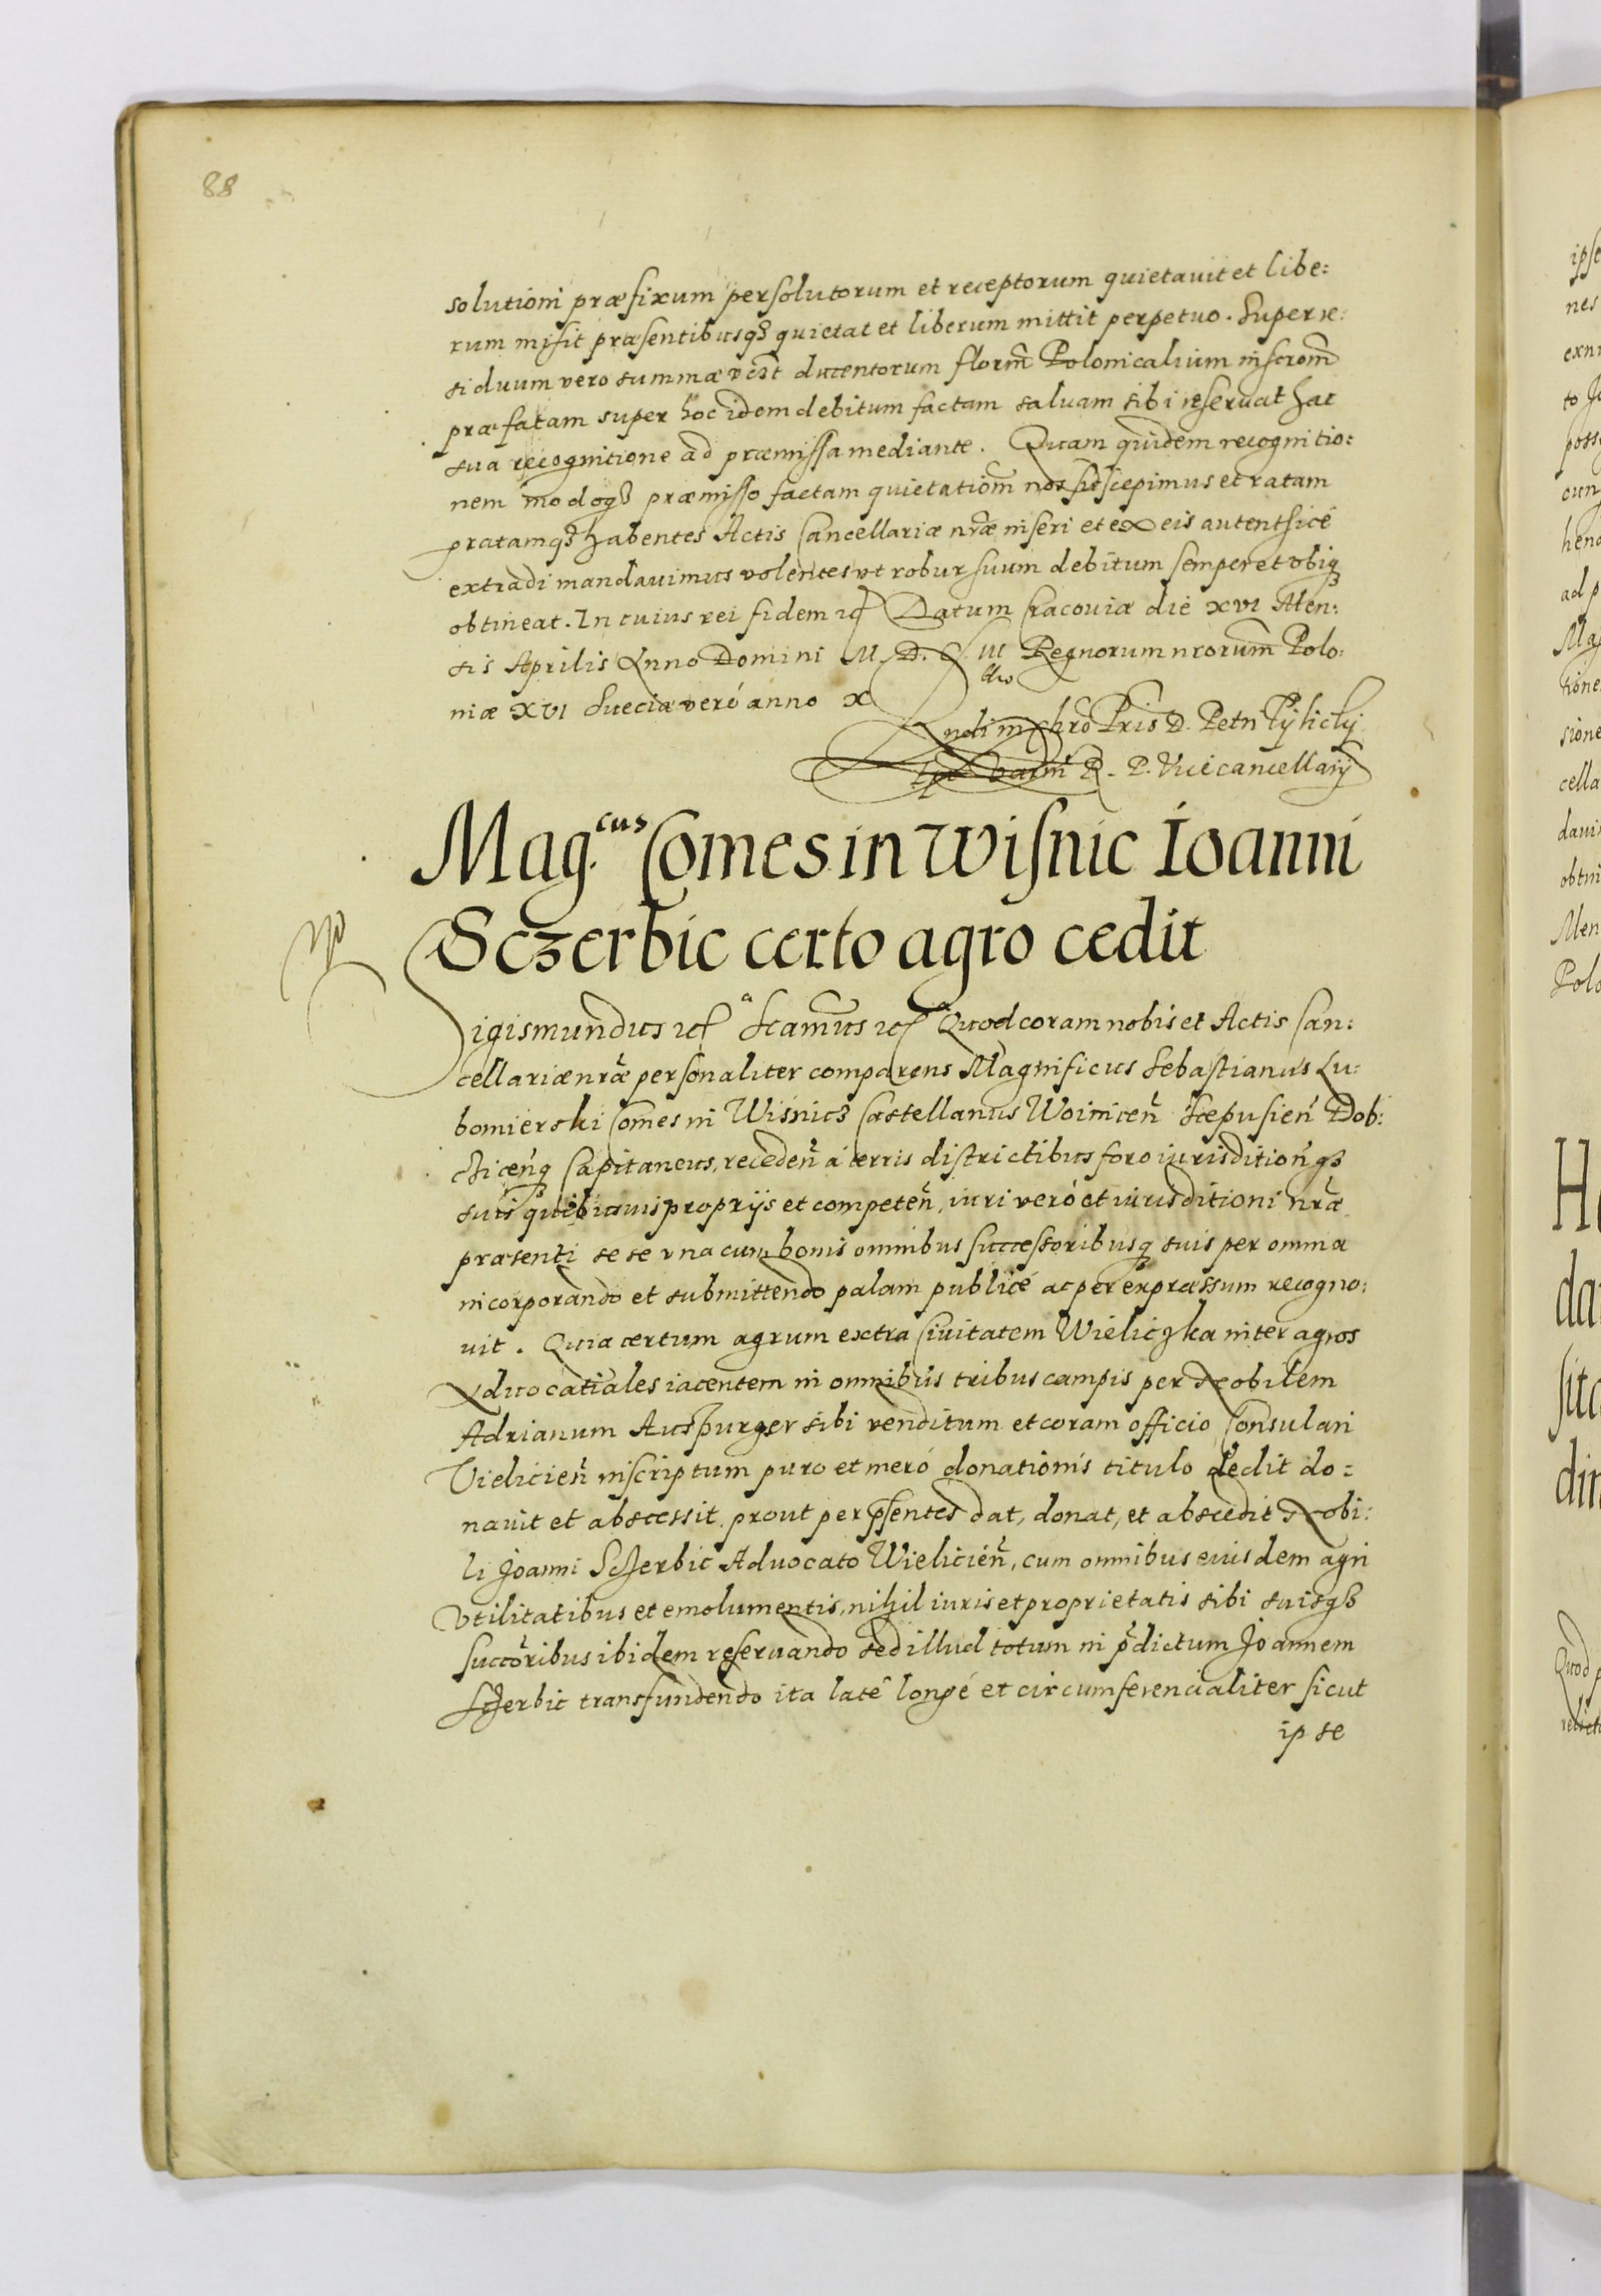 88
solutioni præfixum persolutorum et receptorum quietauit et libe:
rum misit præsentibusq3 quietat et liberum mittit perpetuo. Super re:
siduum vero summæ vczt ducentorum florm̃ Polonicalium inscrom̃
præfatam super hoc idem debitum factam saluam sibi reseruat hac
sua recognitione ad præmissa mediante. Quam quidem recognitio:
nem modoq3 præmisso factam quietatiom̃ nos suscepimus et ratam
gratamq3 habentes Actis Cancellariæ nr̃æ inseri et ex eis autentficé
extradi mandauimus volentes vt robur suum debitum semper et vbiq3
obtineat. In cuius rei fidem zc Datum Cracouiæ die XVI Men:
sis Aprilis Anno Domini M. D. C. III Regnorum nrorum̃ Polo:
niæ XVI Sueciæ veró anno X
Rndi in Chrõ Pris D. Petri Tyliczky
R. P. Vicecancellarij
Mag.cus Comes in Wisnic Ioanni
Sczerbic certo agro cedit
Sigismundus zc Scamus zc Quod coram nobis et Actis Can:
cellariæ nr̃æ personaliter comparens Magnificus Sebastianus Lu:
bomierski Comes in Wisnicz Castellanus Woiniceñ Scepusień Dob:
cziceńq3 Capitaneus, recedeñ á terris districtibus foro iurisditionq3
suis quibusuis proprijs et competeñ, iuri veró et iurisditioni nr̃æ
præsenti se se vna cum bonis omnibus successoribusq3 suis per omnia
incorporando et submittendo palam publicé ac per expræssum recogno:
uit. Quia certum agrum extra Ciuitatem Wieliczka inter agros
Aduocatiales iacentem in omnibus tribus campis per Nobilem
Adrianum Auspurger sibi venditum et coram officio Consulari
Vielicień inscriptum puro et meró donationis titulo dedit do:
nauit et abscessit prout per p̃sentes dat, donat, et abscedit Nobi:
li Joanni Sczerbic Aduocato Wielicień, cum omnibus eiusdem agri
vtilitatibus et emolumentis, nihil iuris et proprietatis sibi suisq3
succor̃ibus ibidem reseruando sed illud totum in p̃dictum Joannem
Sczerbic transfundendo ita laté longé et circumferencialiter sicut
ip se